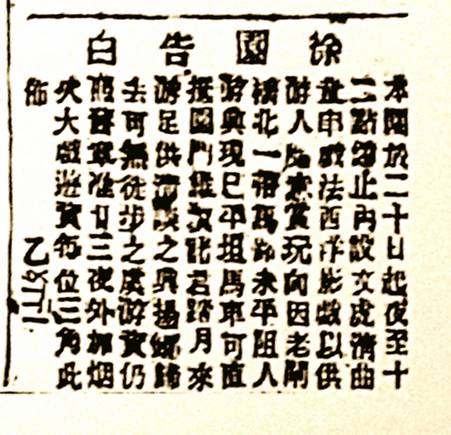 徐園告白
本園於二十日起夜至十
二點鐘止內設文虎清曲
童串戲法西洋影戲以供
游人隨意賞玩向因老閘
橋北一帶馬路未平阻人
游興現已平坦馬車可直
抵園門君踏月來
游足供清談之興揚鞭歸
去可無徒步之虞游資仍
照舊章准廿三夜外加烟
火大戲遊資每位三角此
佈